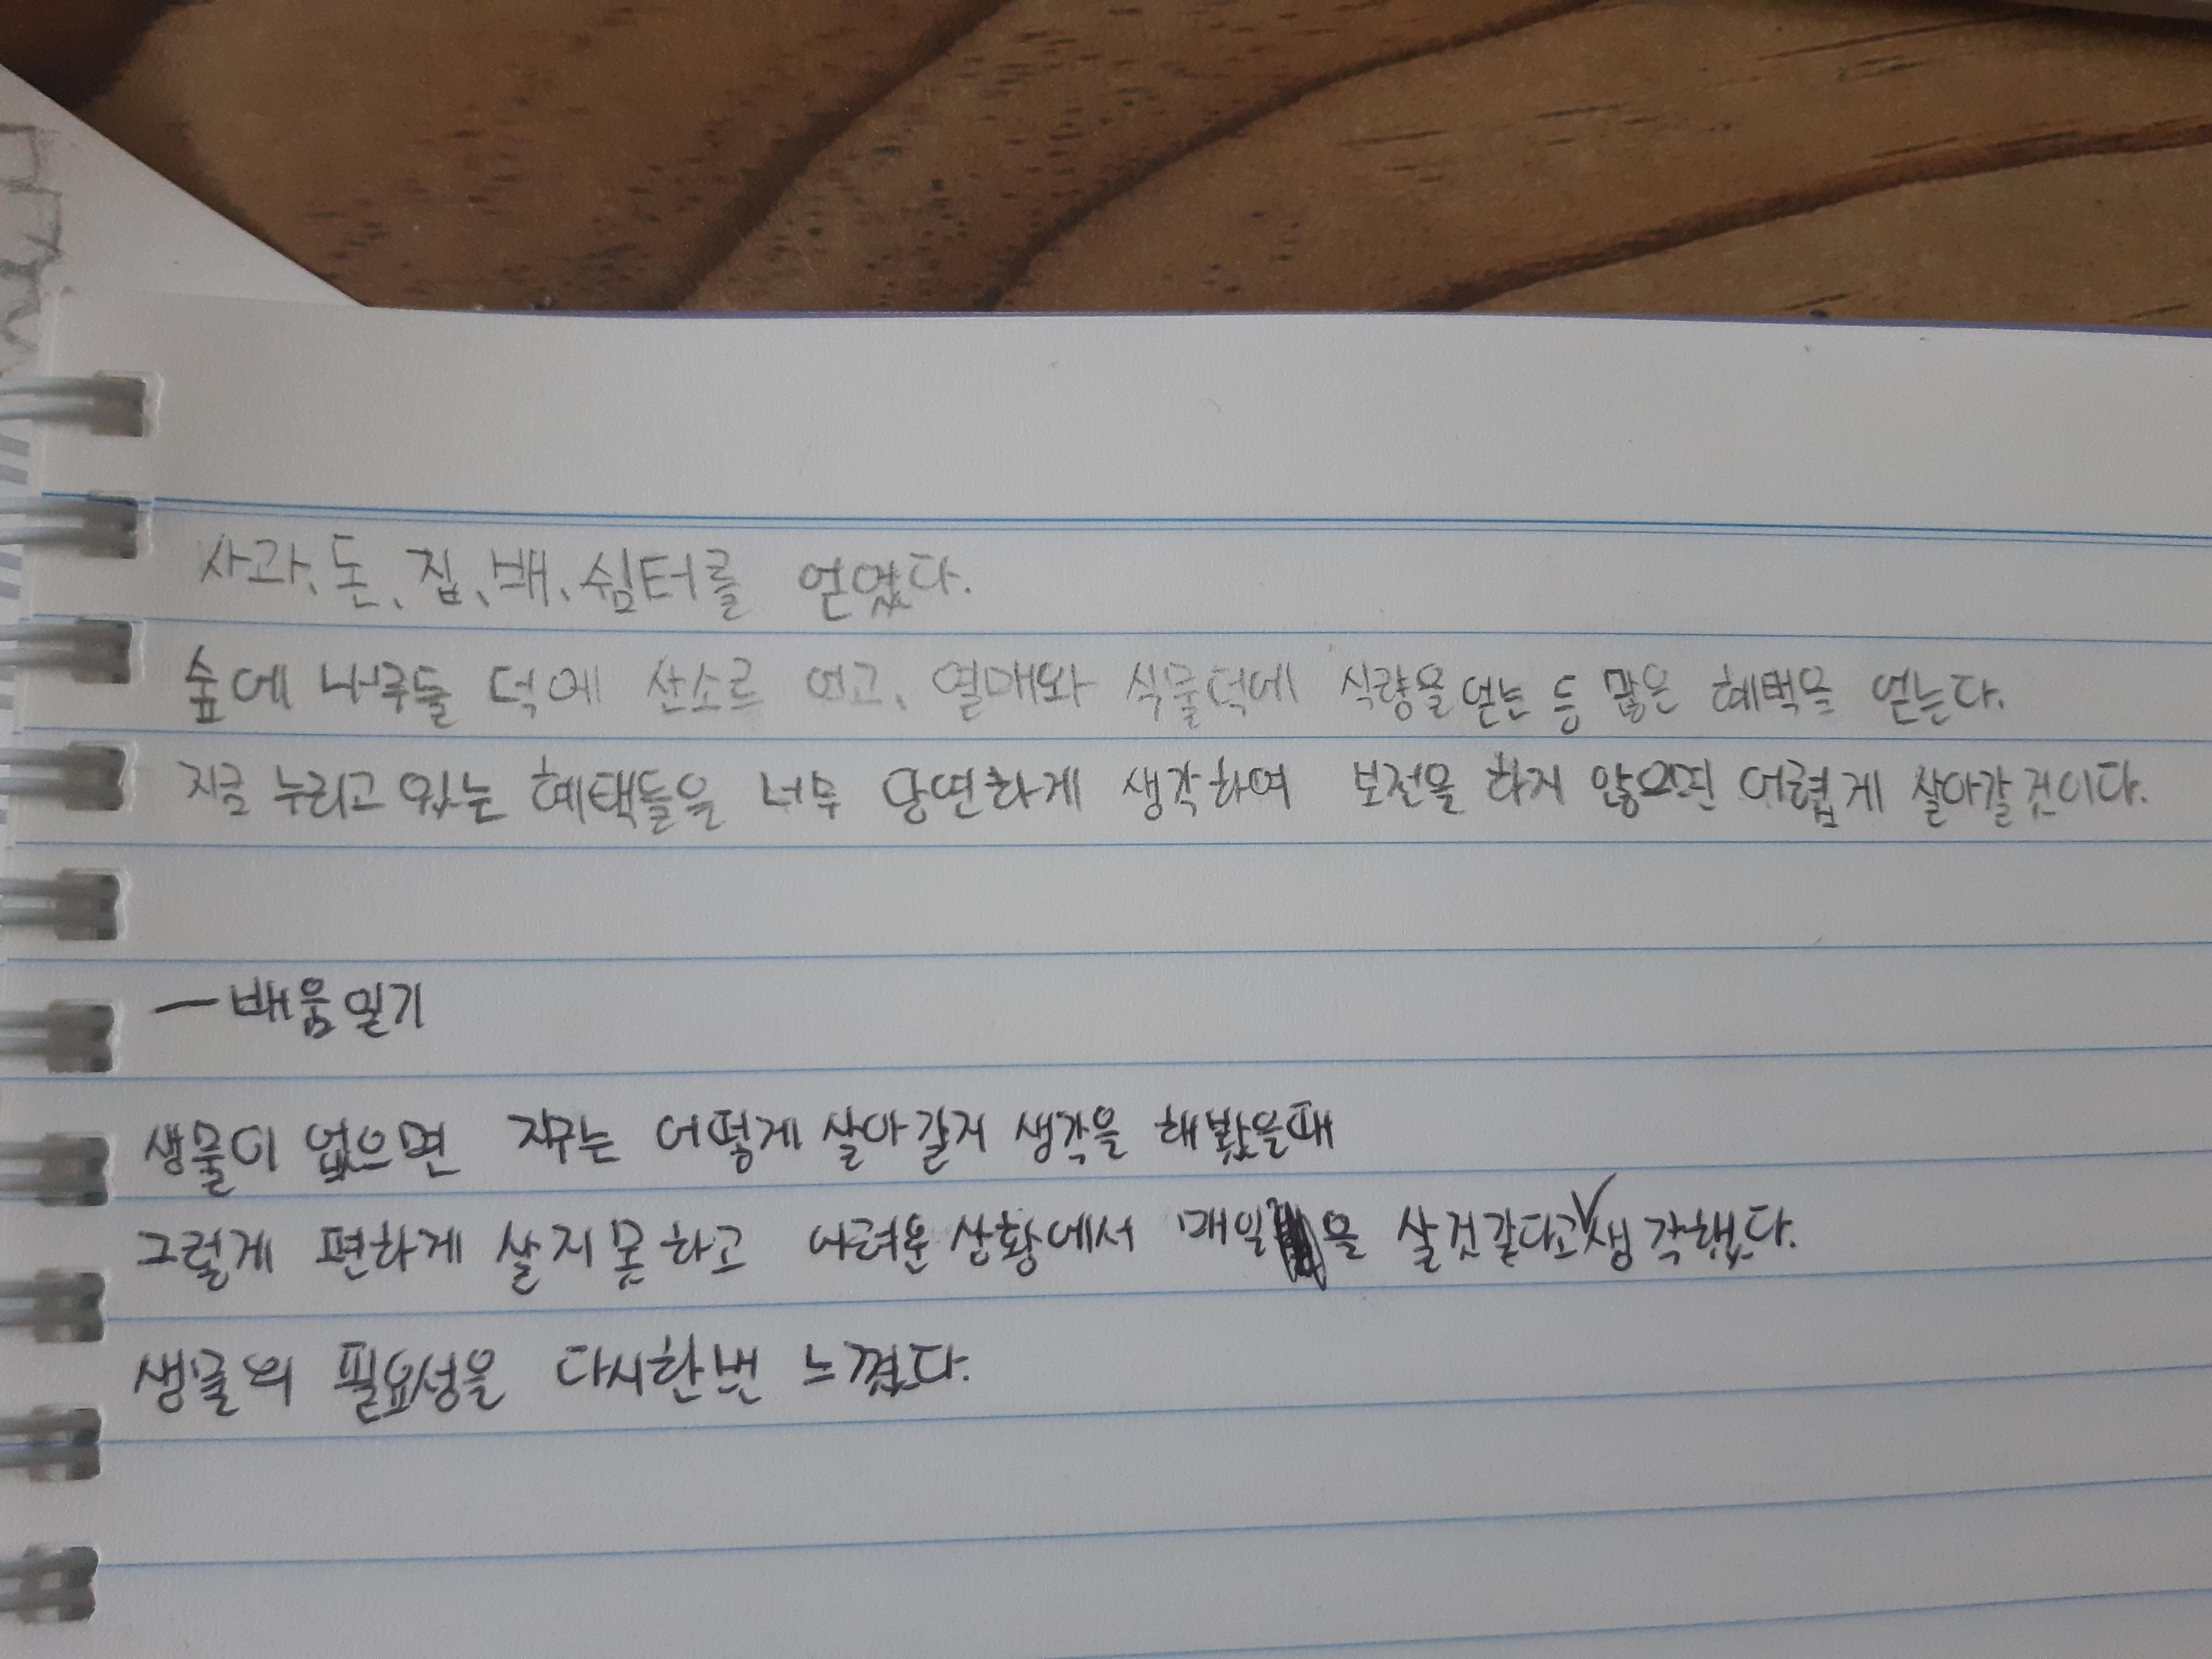 사과、돈、집、배、쉼터를 얻였다.
숲에 나무들 덕에 산소르 얻고、열매와 식물덕에 식량을 얻는 등 많은 혜택을 얻는다.
지금 누리고 있는 혜택들을 너무 당연하게 생각하여 보전을 하지 않으면 어렵게 살아갈것이다.
ー배움일기
생물이 없으면 지구는 어떻게 살아갈지 생각을 해봤을때
그렇게 편하게 살지못하고 어려운 상황에서 매일을 살것같다고 생각했다.
생물의 필요성을 다시한번 느꼈다.